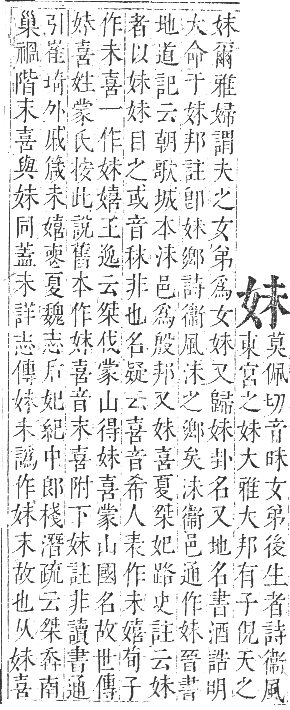 妹
莫佩切音昧女弟後生者詩衞風
東宮之妹大雅大邦有子俔天之
妹爾雅婦謂夫之女弟爲女妹又歸妹卦名又地名書酒誥明
大命于妹邦註卽妹鄉詩衞風沬之鄉矣沬衞邑通作妹晉書
地道記云朝歌城本沬邑爲殷邦又妹喜夏桀妃路史註云妹
者以妹妹目之或音秣非也名疑云喜音希人表作末嬉荀子
作末喜一作妹嬉王逸云桀伐蒙山得妹喜蒙山國名故世傳
妹喜姓蒙氏按此說舊本作妹喜音末喜附下妹註非讀書通
引崔琦外戚箴末嬉蠧夏魏志后妃紀中郎棧潛疏云桀奔南
巢禍階末喜與妹同蓋未詳志傳妹末譌作妹末故也从妹喜